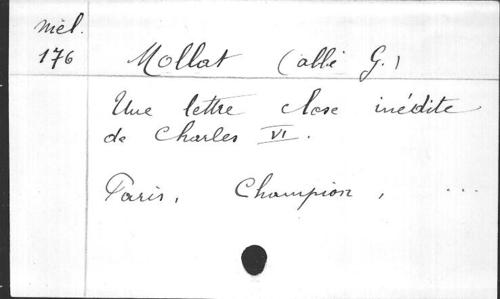 Mél.
176
Mollat (abbé G.)
Une lettre close inédite
de Charles VI.
Paris, Champion, ...